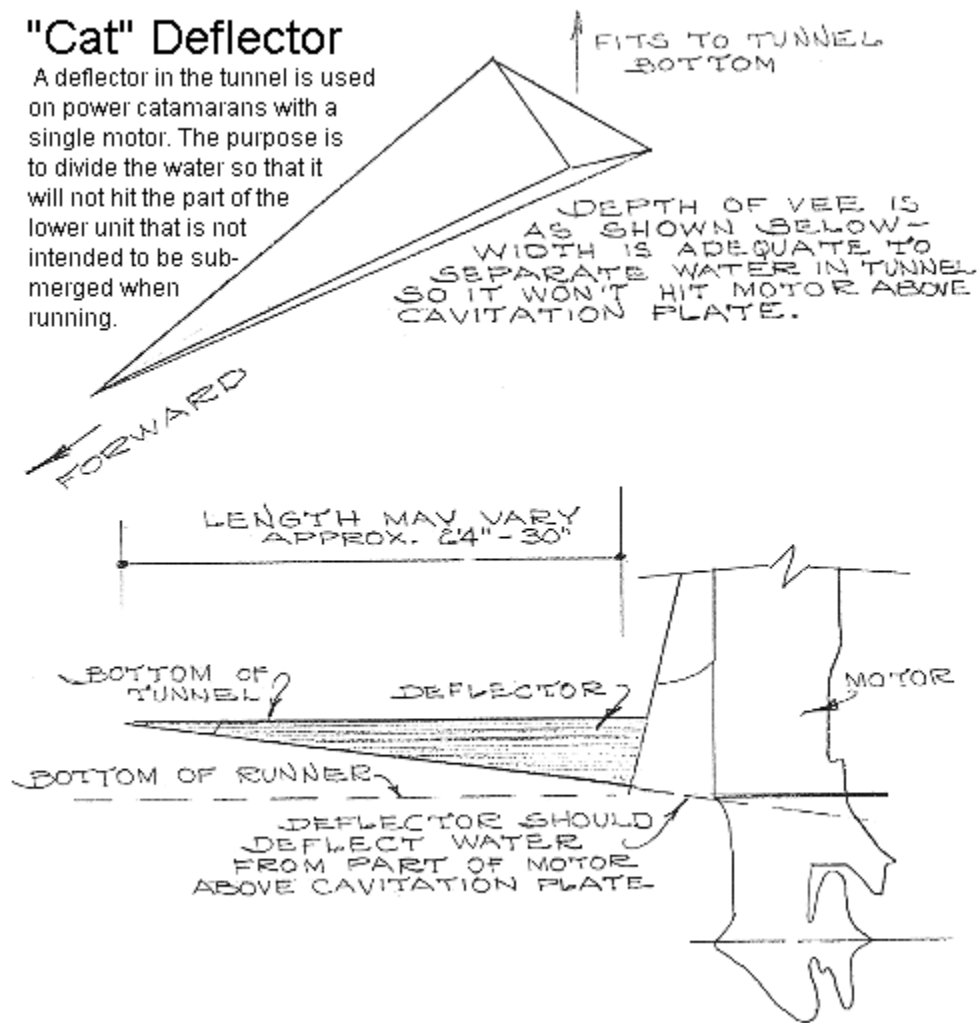 "Cat" Deflector
A deflector in the tunnel is used
on power catamarans with a
single motor. The purpose is
to divide the water so that it
will not hit the part of the
lower unit that is not
intended to be sub-
merged when
running.
FITS TO TUNNEL
BOTTOM
DEPTH OF VEE IS
AS SHOWN BELOW-
WIDTH IS ADEQUATE TO
SEPARATE WATER IN TUNNEL
SO IT WON'T HIT MOTOR ABOVE
CAVITATION PLATE.
FORWARD
LENGTH MAY VARY
APPROX. - 30"
BOTTOM OF
TUNNEL
DEFLECTOR
MOTOR
BOTTOM OF RUNNER
DEFLECTOR SHOULD
DEFLECT WATER
FROM PART OF MOTOR
ABOVE CAVITATION PLATE